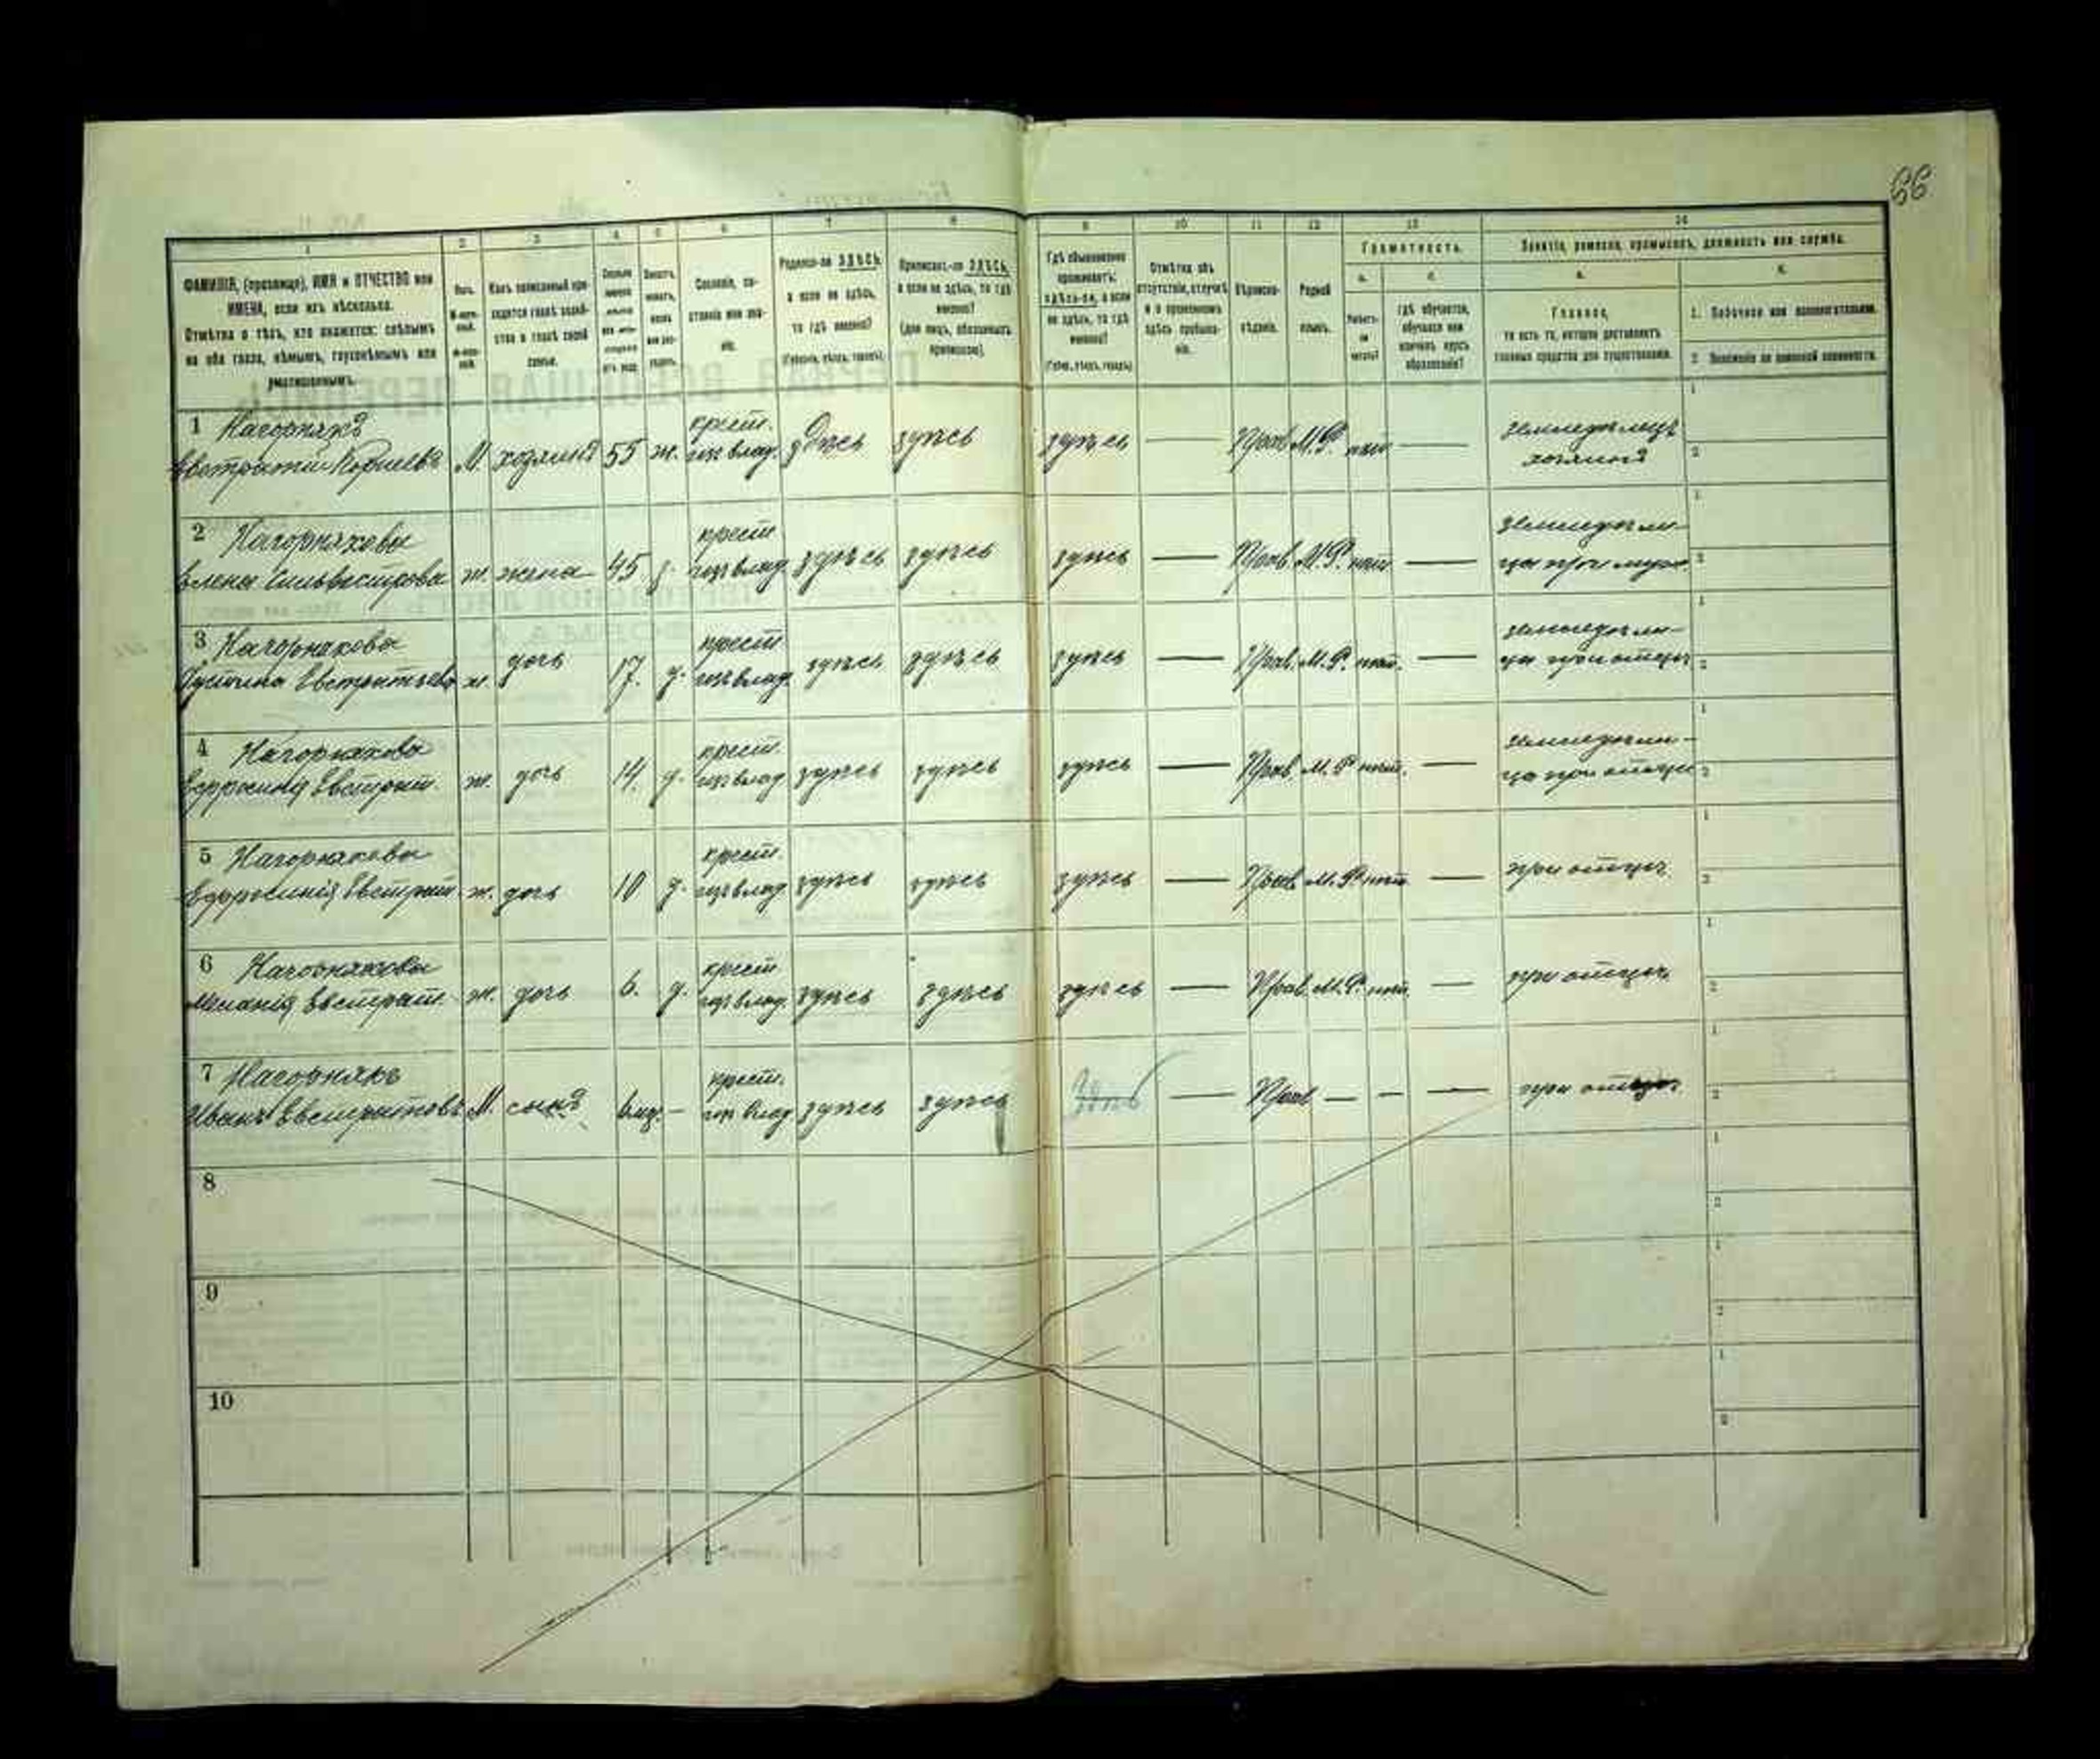 66
1 2 3 4 5 6 7 8 9 10 11 12 13 14
ФАМИЛІЯ, (прозвище), ИМЯ и ОТЧЕСТВО или
ИМЕНА, если ихъ нѣсколько.
Отмѣтка о тѣхъ, кто окажется: слѣпымъ
на оба глаза, нѣмымъ, глухонѣмымъ или
умалишеннымъ.
Полъ.
М-муж-
ской.
Ж-жен-
скій.
Какъ записанный при-
ходится главѣ хозяй-
ства и главѣ своей
семьи.
Сословіе, со-
стояніе или зва-
ніе.
Родился-ли ЗДѢСЬ,
а если не здѣсь,
то гдѣ именно?
(Губернія, уѣздъ, городъ).
Приписанъ-ли ЗДѢСЬ,
а если не здѣсь, то гдѣ
именно?
(для лицъ, обязанныхъ
припискою).
Гдѣ обыкновенно
проживаетъ:
здѣсь-ли, а если
не здѣсь, то гдѣ
именно?
(Губер., уѣздъ, городъ)
Отмѣтка объ
отсутствіи, отлучкѣ
и о временномъ
здѣсь пребыва-
ніи.
Вѣроиспо-
вѣданіе.
Родной
языкъ.
Грамотность.
а.
Умѣетъ-
ли
читать?
б.
гдѣ обучается,
обучался или
кончилъ курсъ
образованія?
Занятіе, ремесло, промыселъ, должность или служба.
а.
Главное,
то есть то, которое доставляетъ
главныя средства для существованія.
б.
1. Побочное или вспомогательное.
2. Положеніе по воинской повинности.
1 Нагорнякъ
Евстратій Корніевъ М. хозяинъ 55 ж. крест. изъ влад. здѣсь здѣсь здѣсь — Прав. М.Р. нѣт — земледѣлецъ
хозяинъ
2 Нагорнякова
Елена Сильвестрова ж. жена 45 з. крест. изъ влад. здѣсь здѣсь здѣсь — Прав. М.Р. нѣт. — земледѣли-
ца при муже
3 Нагорнякова
Устина Евстратьева ж. дочь 17. д. крест. изъ влад. здѣсь здѣсь здѣсь — Прав. М.Р. нѣт. — земледѣли-
ца при отцѣ
4 Нагорнякова
Евстрат. ж. дочь 14. д. крест. изъ влад. здѣсь здѣсь здѣсь — Прав. М.Р. нѣт. — земледѣли-
ца при отцѣ
5 Нагорнякова
Ефросинія Евстрат. ж. дочь 10 д. крест. изъ влад. здѣсь здѣсь здѣсь — Прав. М.Р. нѣт. — при отцѣ.
6 Нагорнякова
Меланія Евстрат. ж. дочь 6. д. крест. изъ влад. здѣсь здѣсь здѣсь — Прав. М.Р. нѣт. — при отцѣ.
7 Нагорнякъ
Иванъ Евстратовъ М. сынъ — крест. изъ влад. здѣсь здѣсь — Прав — — — при отцѣ.
8
9
10